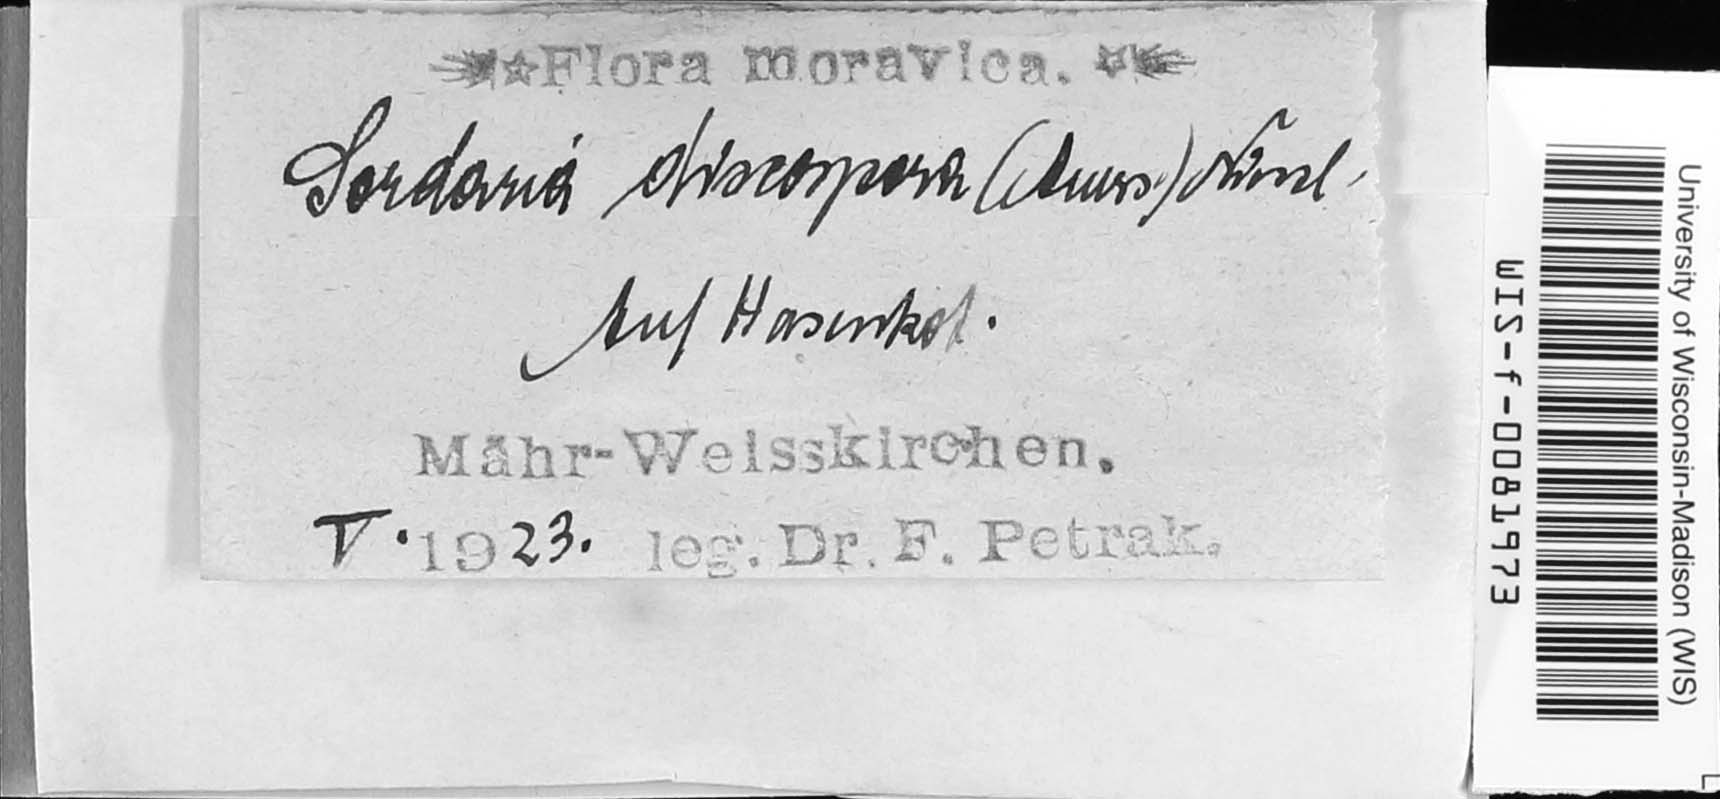 Flora moravica.
Sordaria discospora (Auersw.) Niessl.
Auf Hasenkot.
Mähr-Weisskirchen.
V. 1923. leg. Dr. F. Petrak.
University of Wisconsin-Madison (WIS)
WIS-f-0081973